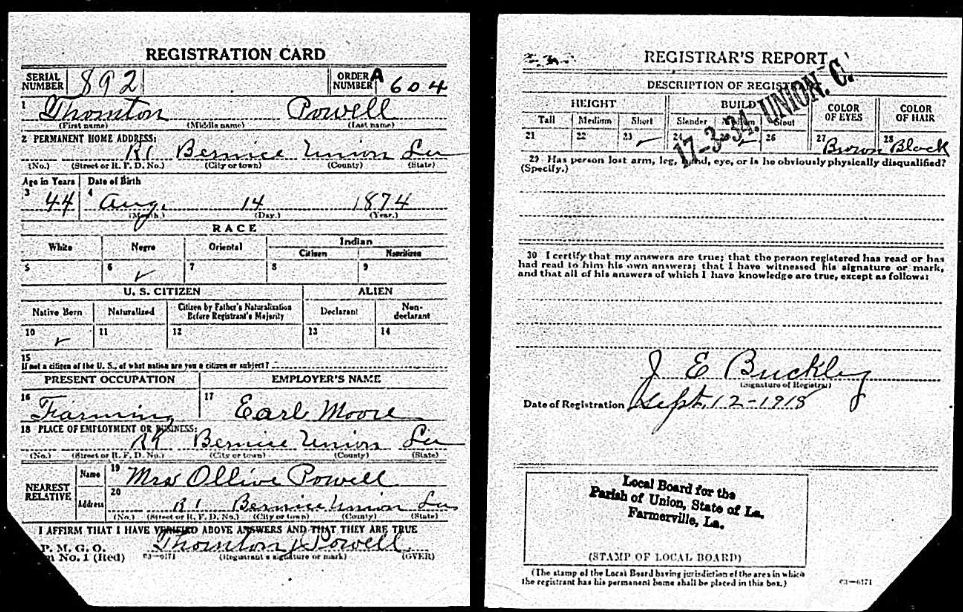 REGISTRATION CARD
SERIAL NUMBER 892 ORDER NUMBER A 604
1 Thornton Powell
(First name) (Middle name) (Last name)
2 PERMANENT HOME ADDRESS:
R1 Bernice Union La
(No.) (Street or R. F. D. No.) (City or town) (County) (State)
Age in Years Date of Birth
3 44 4 Aug. 14 1874
(Month.) (Day.) (Year.)
RACE
White Negro Oriental Indian
Citizen Noncitizen
5 6 ✓ 7 8 9
U. S. CITIZEN ALIEN
Native Born Naturalized Citizen by Father's Naturalization Before Registrant's Majority Declarant Non-declarant
10 ✓ 11 12 13 14
15
If not a citizen of the U. S., of what nation are you a citizen or subject?
PRESENT OCCUPATION EMPLOYER'S NAME
16 Farming 17 Earl Moore
18 PLACE OF EMPLOYMENT OR BUSINESS:
Bernice Union La
(No.) (Street or R. F. D. No.) (City or town) (County) (State)
NEAREST RELATIVE Name 19 Mrs Ollive Powell
Address 20 R1 Bernice Union La
(No.) (Street or R. F. D. No.) (City or town) (County) (State)
I AFFIRM THAT I HAVE VERIFIED ABOVE ANSWERS AND THAT THEY ARE TRUE
P. M. G. O.
No. 1 (Red) 03—6171 Thornton Powell
(Registrant's signature or mark) (OVER)
REGISTRAR'S REPORT
17-3-34. UNION. C.
DESCRIPTION OF REGISTRANT
HEIGHT BUILD COLOR OF EYES COLOR OF HAIR
Tall Medium Short Slender Medium Stout
21 22 23 ✓ 24 25 ✓ 26 27 Brown 28 Black
29 Has person lost arm, leg, hand, eye, or is he obviously physically disqualified?
(Specify.)
30 I certify that my answers are true; that the person registered has read or has
had read to him his own answers; that I have witnessed his signature or mark,
and that all of his answers of which I have knowledge are true, except as follows:
J E Buckley
(Signature of Registrar)
Date of Registration Sept. 12-1918
Local Board for the
Parish of Union, State of La.
Farmerville, La.
(STAMP OF LOCAL BOARD)
(The stamp of the Local Board having jurisdiction of the area in which
the registrant has his permanent home shall be placed in this box.) 03—6171